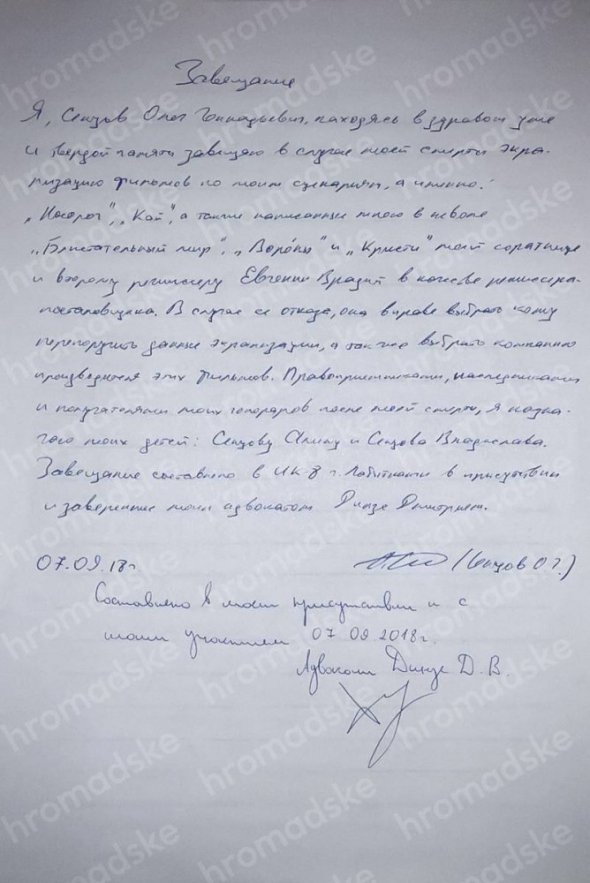 Завещание
Я, Сенцов Олег Геннадьевич, находясь в здравом уме
и твердой памяти завещаю в случае моей смерти экра-
низацию фильмов по моим сценариям, а именно:
„Носорог", „Кай", а также написанные мною в неволе
„Блистательный мир", „Ворóны" и „Кристи" моей соратнице
и второму режиссеру Евгении Врадий в качестве режиссера-
постановщика. В случае ее отказа, она вправе выбрать кому
перепоручить данные экранизации, а так же выбрать компанию
производителя этих фильмов. Правоприемниками, наследниками
и получателями моих гонораров после моей смерти, я назна-
чаю моих детей: Сенцову Алину и Сенцова Владислава.
Завещание составлено в ИК-8 г. Лабытнанги в присутствии
и заверенное моим адвокатом Динзе Дмитрием.
07.09.18г (Сенцов О.Г.)
Составлено в моем присутствии и с
моим участием 07.09.2018г.
Адвокат Динзе Д.В.
hromadske